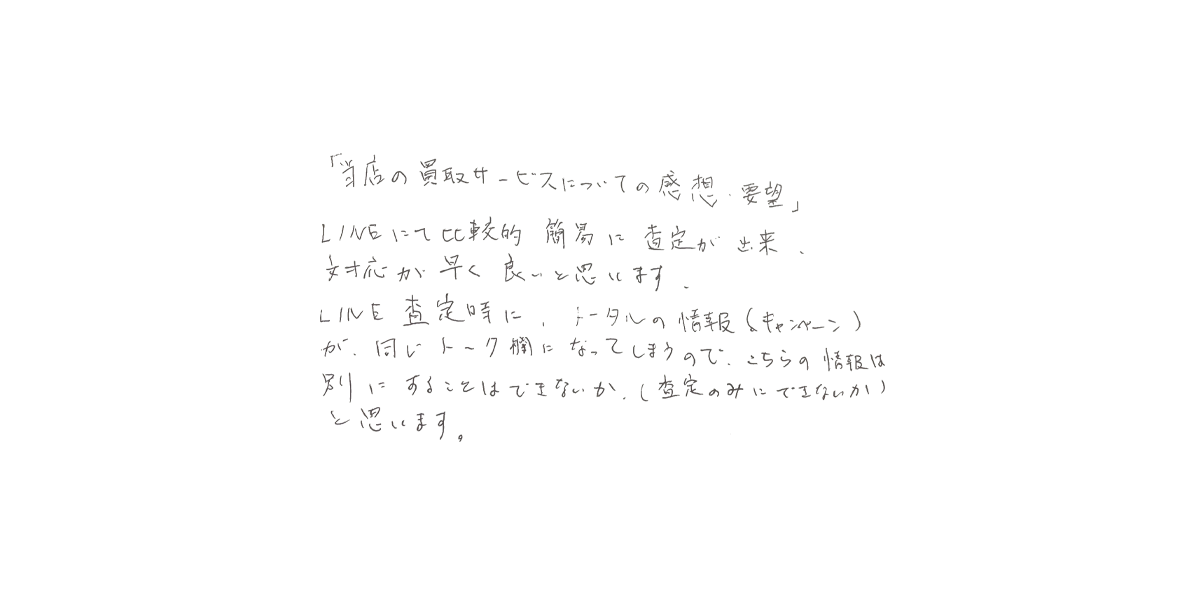 「当店の買取サービスについての感想・要望」
LINEにて比較的 簡易に 査定が出来、
対応が早く良いと思います。
LINE 査定時に、トータルの情報(キャンペーン)
が、同じトーク欄になってしまうので、こちらの情報は
別にすることはできないか、(査定のみにできないか)
と思います。